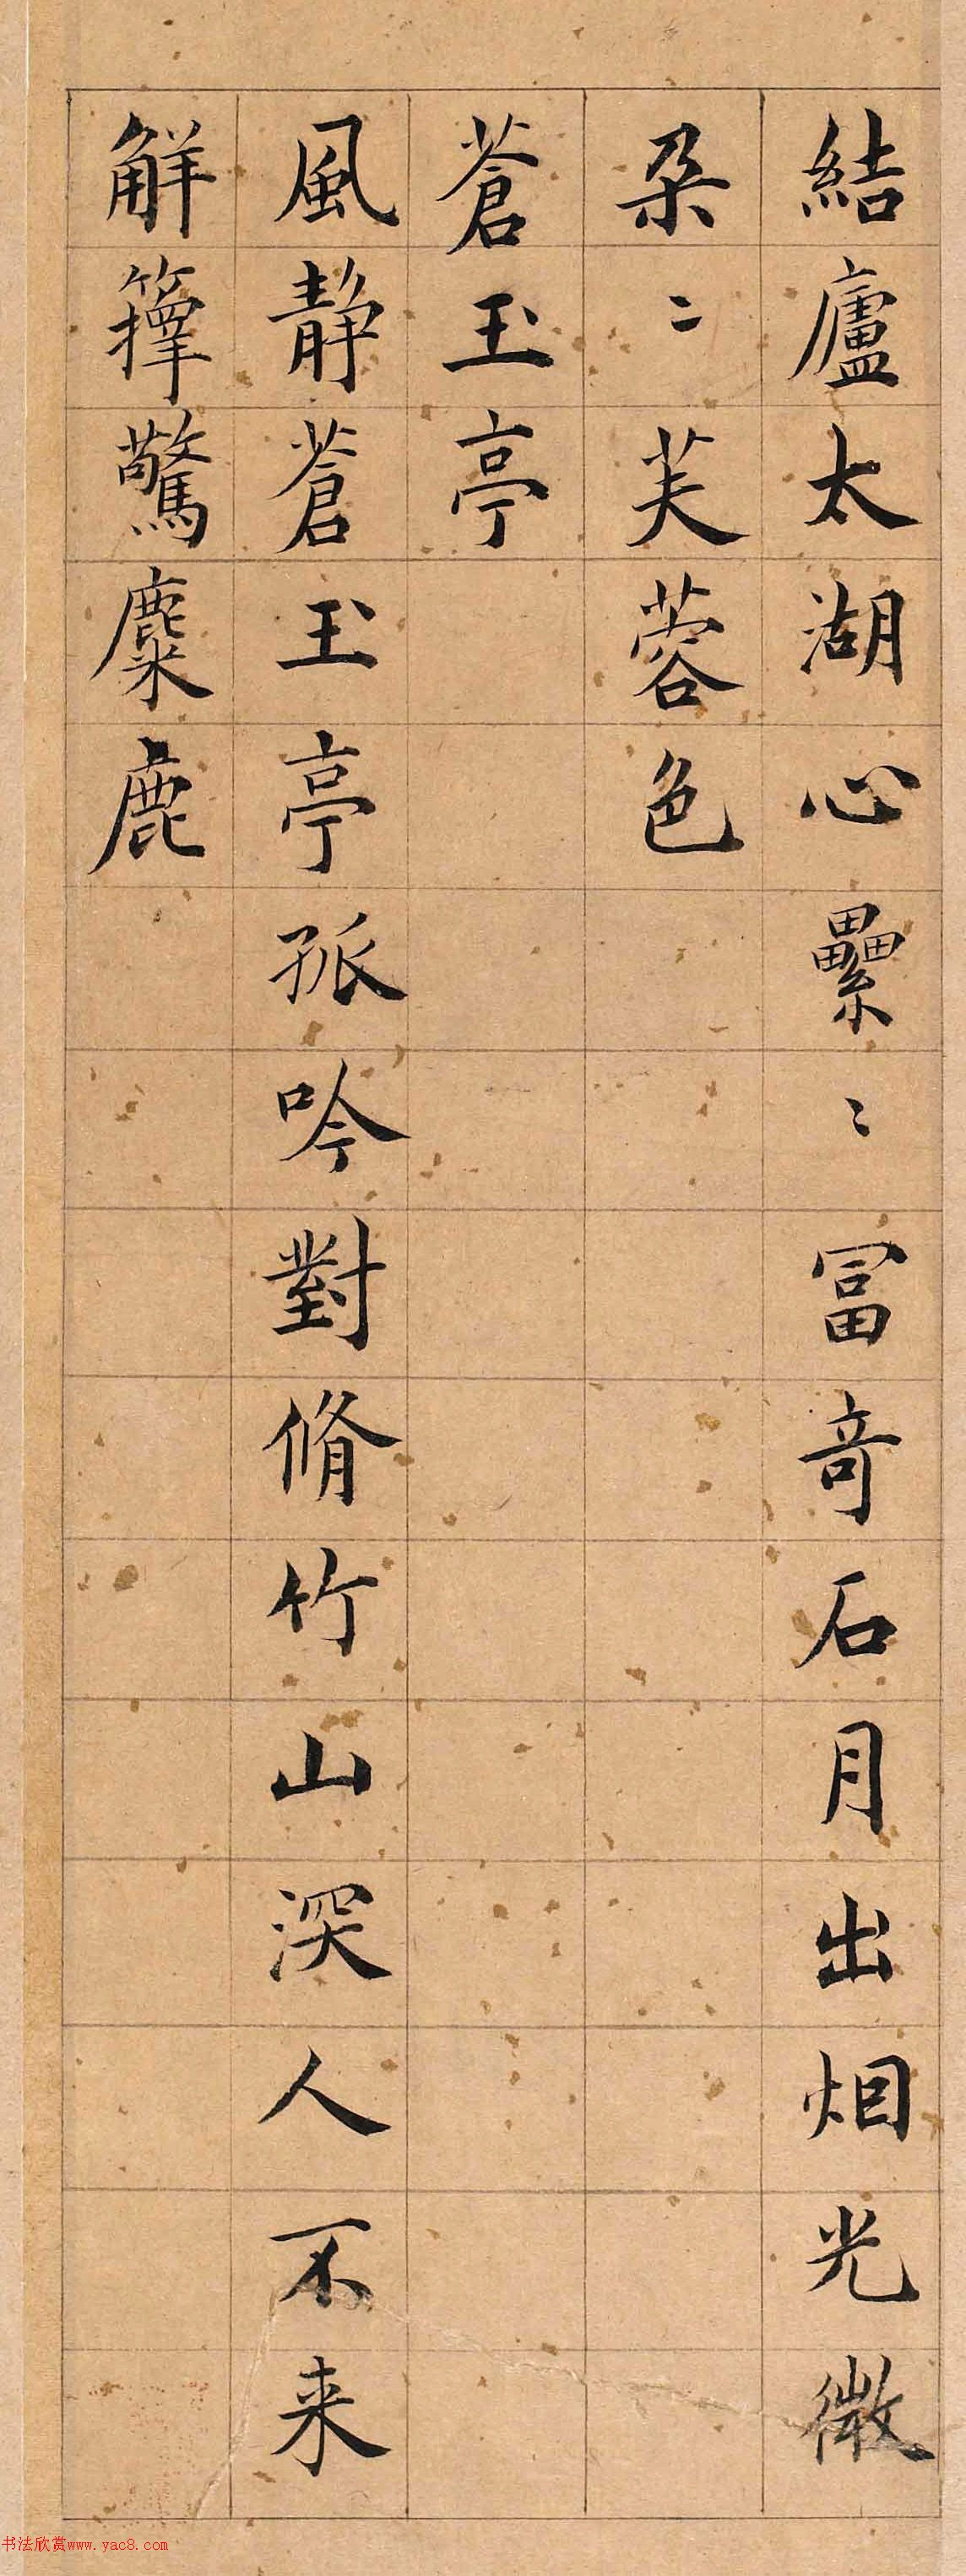 結廬太湖心纍〻冨竒石月出烟光微
朶〻芙蓉色
蒼玉亭
風静蒼玉亭孤吟對脩竹山深人不来
觧籜驚麋鹿
书法欣赏www.yac8.com